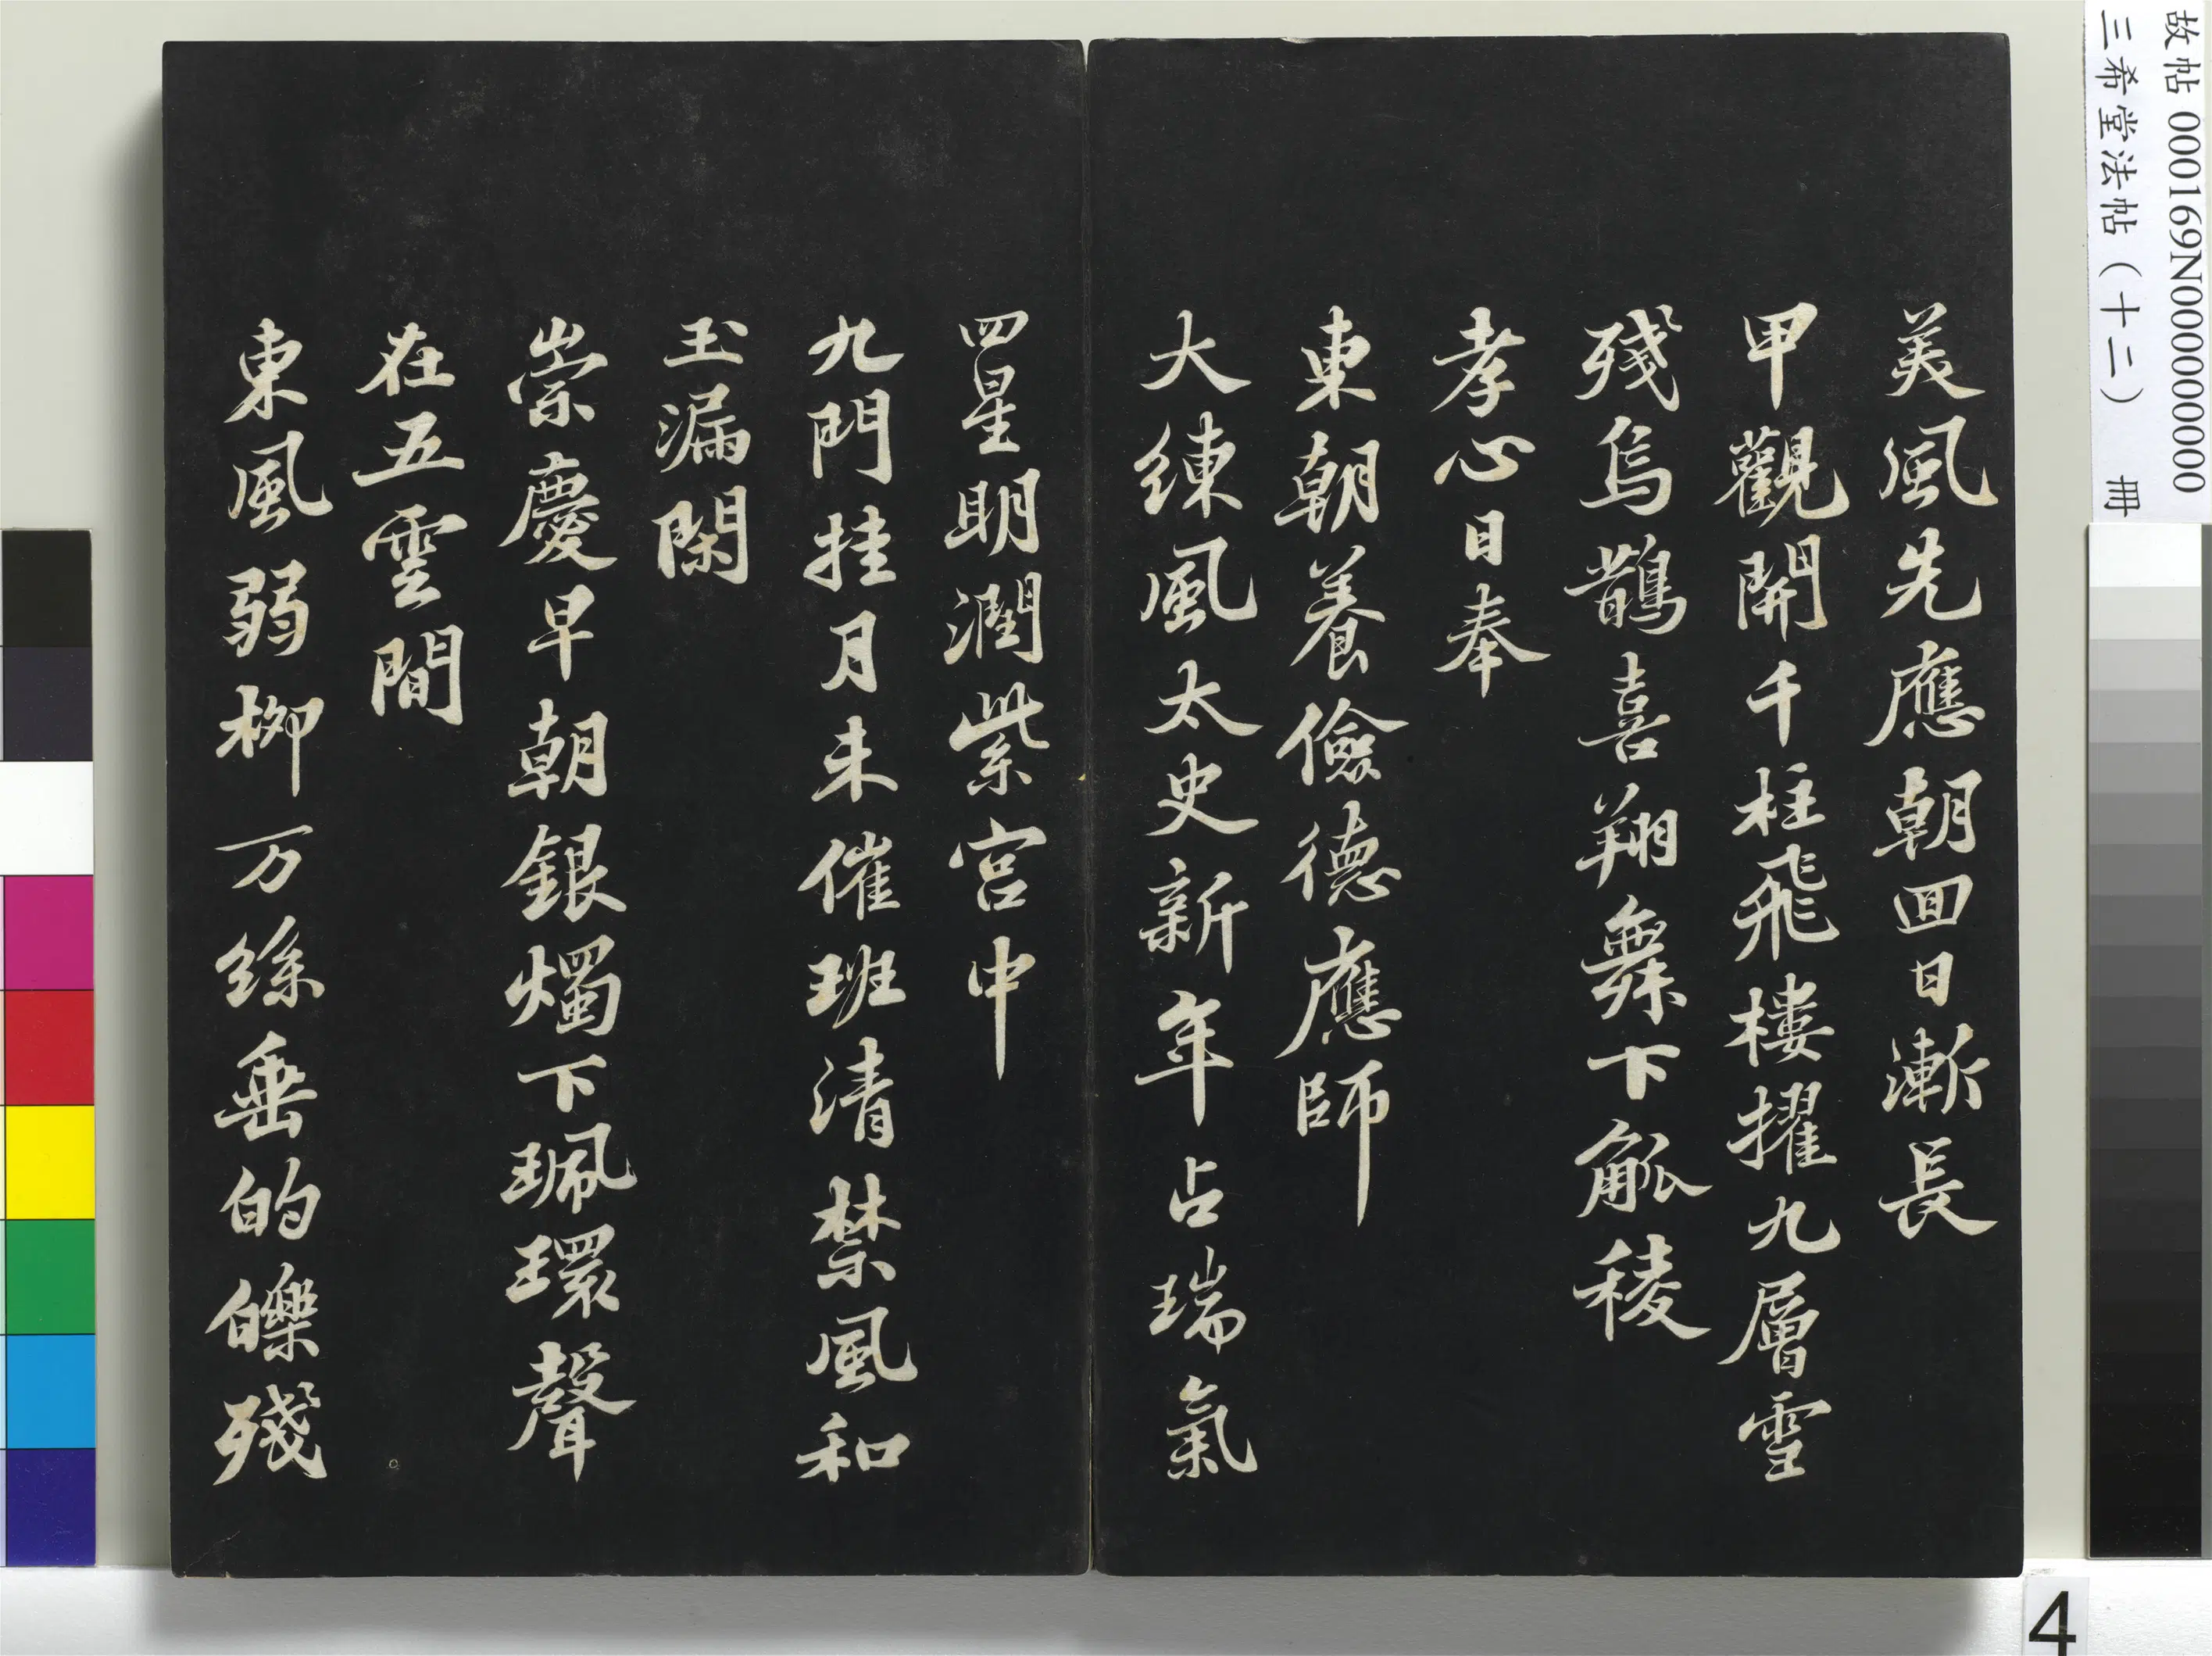 故帖 000169N000000000
三希堂法帖（十二） 冊
美風先應朝回日漸長
甲觀開千柱飛樓擢九層雪
殘烏鵲喜翔舞下觚稜
孝心日奉
東朝養儉德應師
大練風太史新年占瑞氣
四星明潤紫宮中
九門挂月未催班清禁風和
玉漏閑
崇慶早朝銀燭下珮環聲
在五雲間
東風弱柳万絲垂的皪殘
4